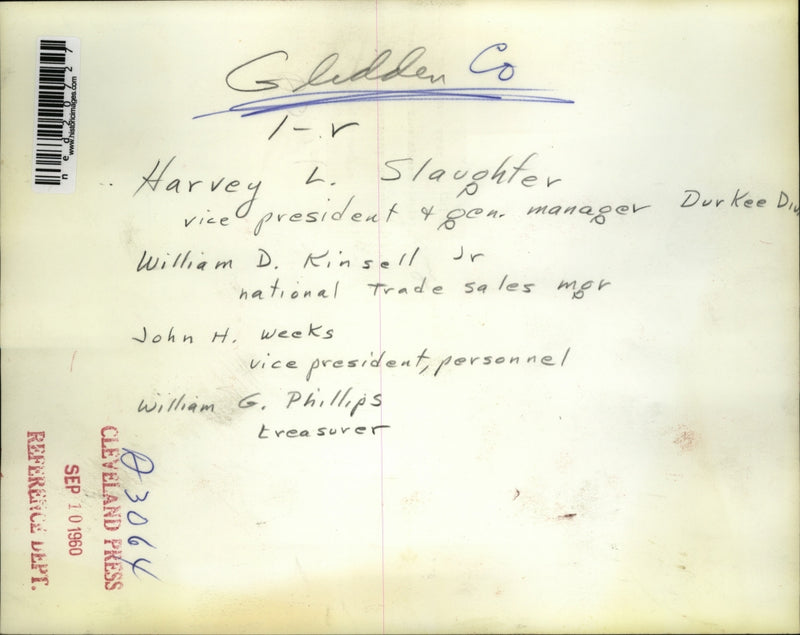 Glidden Co
l-r
Harvey L. Slaughter
vice president & gen. manager Durkee Div
William D. Kinsell Jr
national Trade sales mgr
John H. Weeks
vice president, personnel
William G. Phillips
treasurer
ned20727
www.historicimages.com
A3064
CLEVELAND PRESS
SEP 10 1960
REFERENCE DEPT.